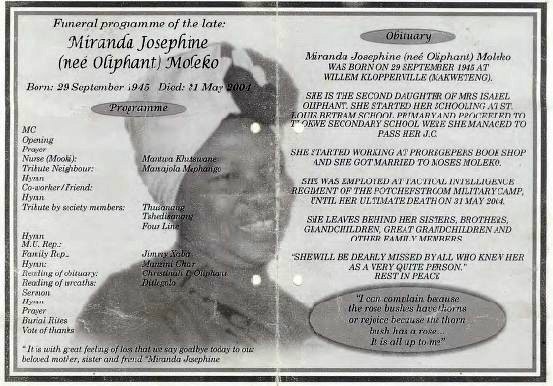 Funeral programme of the late:
Miranda Josephine
(neé Oliphant) Moleko
Born: 29 September 1945 Died: 31 May 2004
Programme
MC
Opening
Prayer
Nurse (Mooki): Mantwa Khutswane
Tribute Neighbour: Mamajola Mophango
Hymn
Co-worker/Friend:
Hymn
Tribute by society members: Thusanang
Tshedisanang
Four Line
Hymn
M.U. Rep.:
Family Rep.: Jimmy Xaba
Hymn: Manzini Choir
Reading of obituary: Christinah P. Oliphant
Reading of wreaths: Ditlegolo
Sermon
Hymn
Prayer
Burial Rites
Vote of thanks
"It is with great feeling of loss that we say goodbye today to our
beloved mother, sister and friend "Miranda Josephine
Obituary
Miranda Josephine (neé Oliphant) Moleko
WAS BORN ON 29 SEPTEMBER 1945 AT
WILLEM KLOPPERVILLE (MAKWETENG).
SHE IS THE SECOND DAUGHTER OF MRS ISABEL
OLIPHANT. SHE STARTED HER SCHOOLING AT ST.
LOUIE BETRAM SCHOOL PRIMARY AND PROCEEDED TO
SECONDARY SCHOOL WERE SHE MANAGED TO
PASS HER J.C.
SHE STARTED WORKING AT PRO REGE PERS BOOK SHOP
AND SHE GOT MARRIED TO MOSES MOLEKO.
SHE WAS EMPLOYED AT TACTICAL INTELLIGENCE
REGIMENT OF THE POTCHEFSTROOM MILITARY CAMP,
UNTIL HER ULTIMATE DEATH ON 31 MAY 2004.
SHE LEAVES BEHIND HER SISTERS, BROTHERS,
GRANDCHILDREN, GREAT GRANDCHILDREN AND
OTHER FAMILY MEMBERS.
"SHE WILL BE DEARLY MISSED BY ALL WHO KNEW HER
AS A VERY QUITE PERSON."
REST IN PEACE
"I can complain because
the rose bushes have thorns
or rejoice because the thorn
bush has a rose...
It is all up to me"